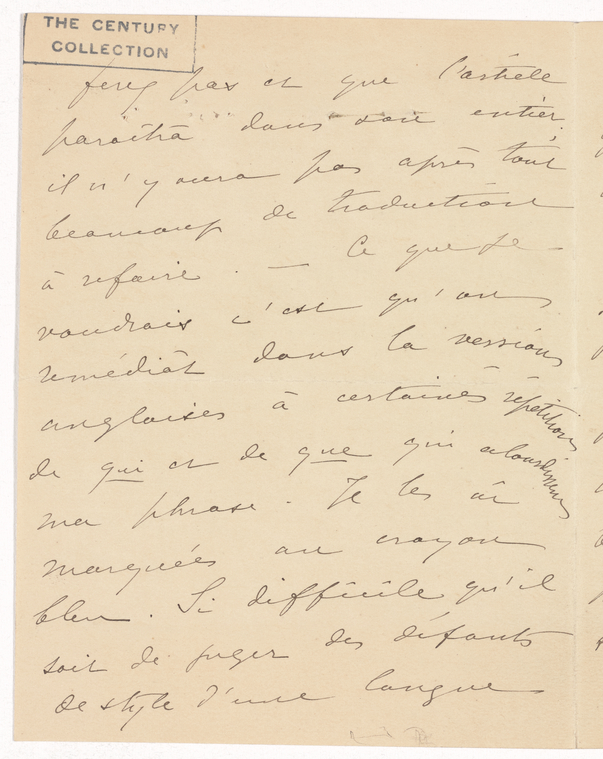 THE CENTURY
COLLECTION
ferez pas et que l'article
paraîtra dans son entier
il n'y aura pas après tout
beaucoup de traductions
à refaire. — Ce que je
voudrais c'est qu'on
remédiât dans la version
anglaises à certaines répétitions
de qui et de que qui alourdissent
ma phrase. Je les ai
marquées au crayon
bleu. Si difficile qu'il
soit de juger des défauts
de style d'une langue